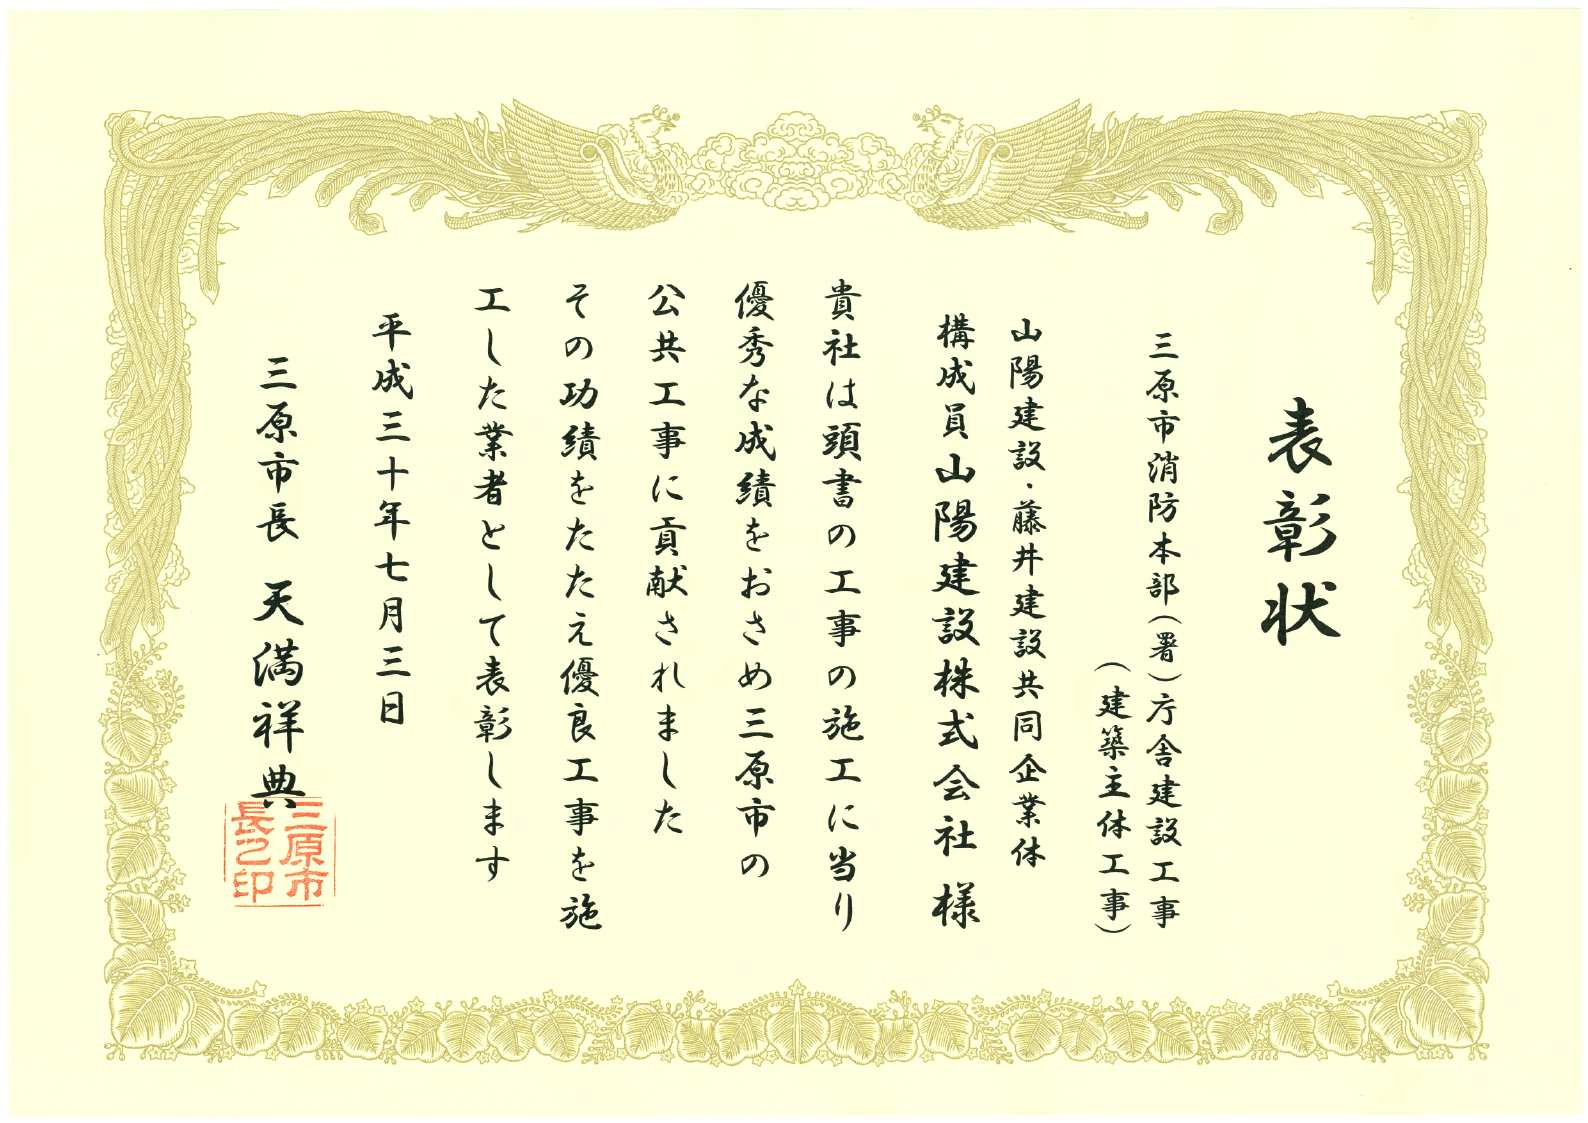 表彰状
三原市消防本部（署）庁舎建設工事
（建築主体工事）
山陽建設・藤井建設共同企業体
構成員山陽建設株式会社 様
貴社は頭書の工事の施工に当り
優秀な成績をおさめ三原市の
公共工事に貢献されました
その功績をたたえ優良工事を施
工した業者として表彰します
平成三十年七月三日
三原市長 天満祥典
三原市
長之印